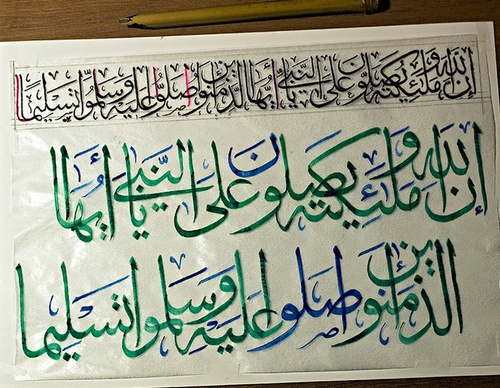 إن الله وملئكته يصلون على النبي يا أيها الذين امنوا صلوا عليه وسلموا تسليما
إن الله وملئكته يصلون على النبي يا أيها ا
لذين امنوا صلوا عليه وسلموا تسليما